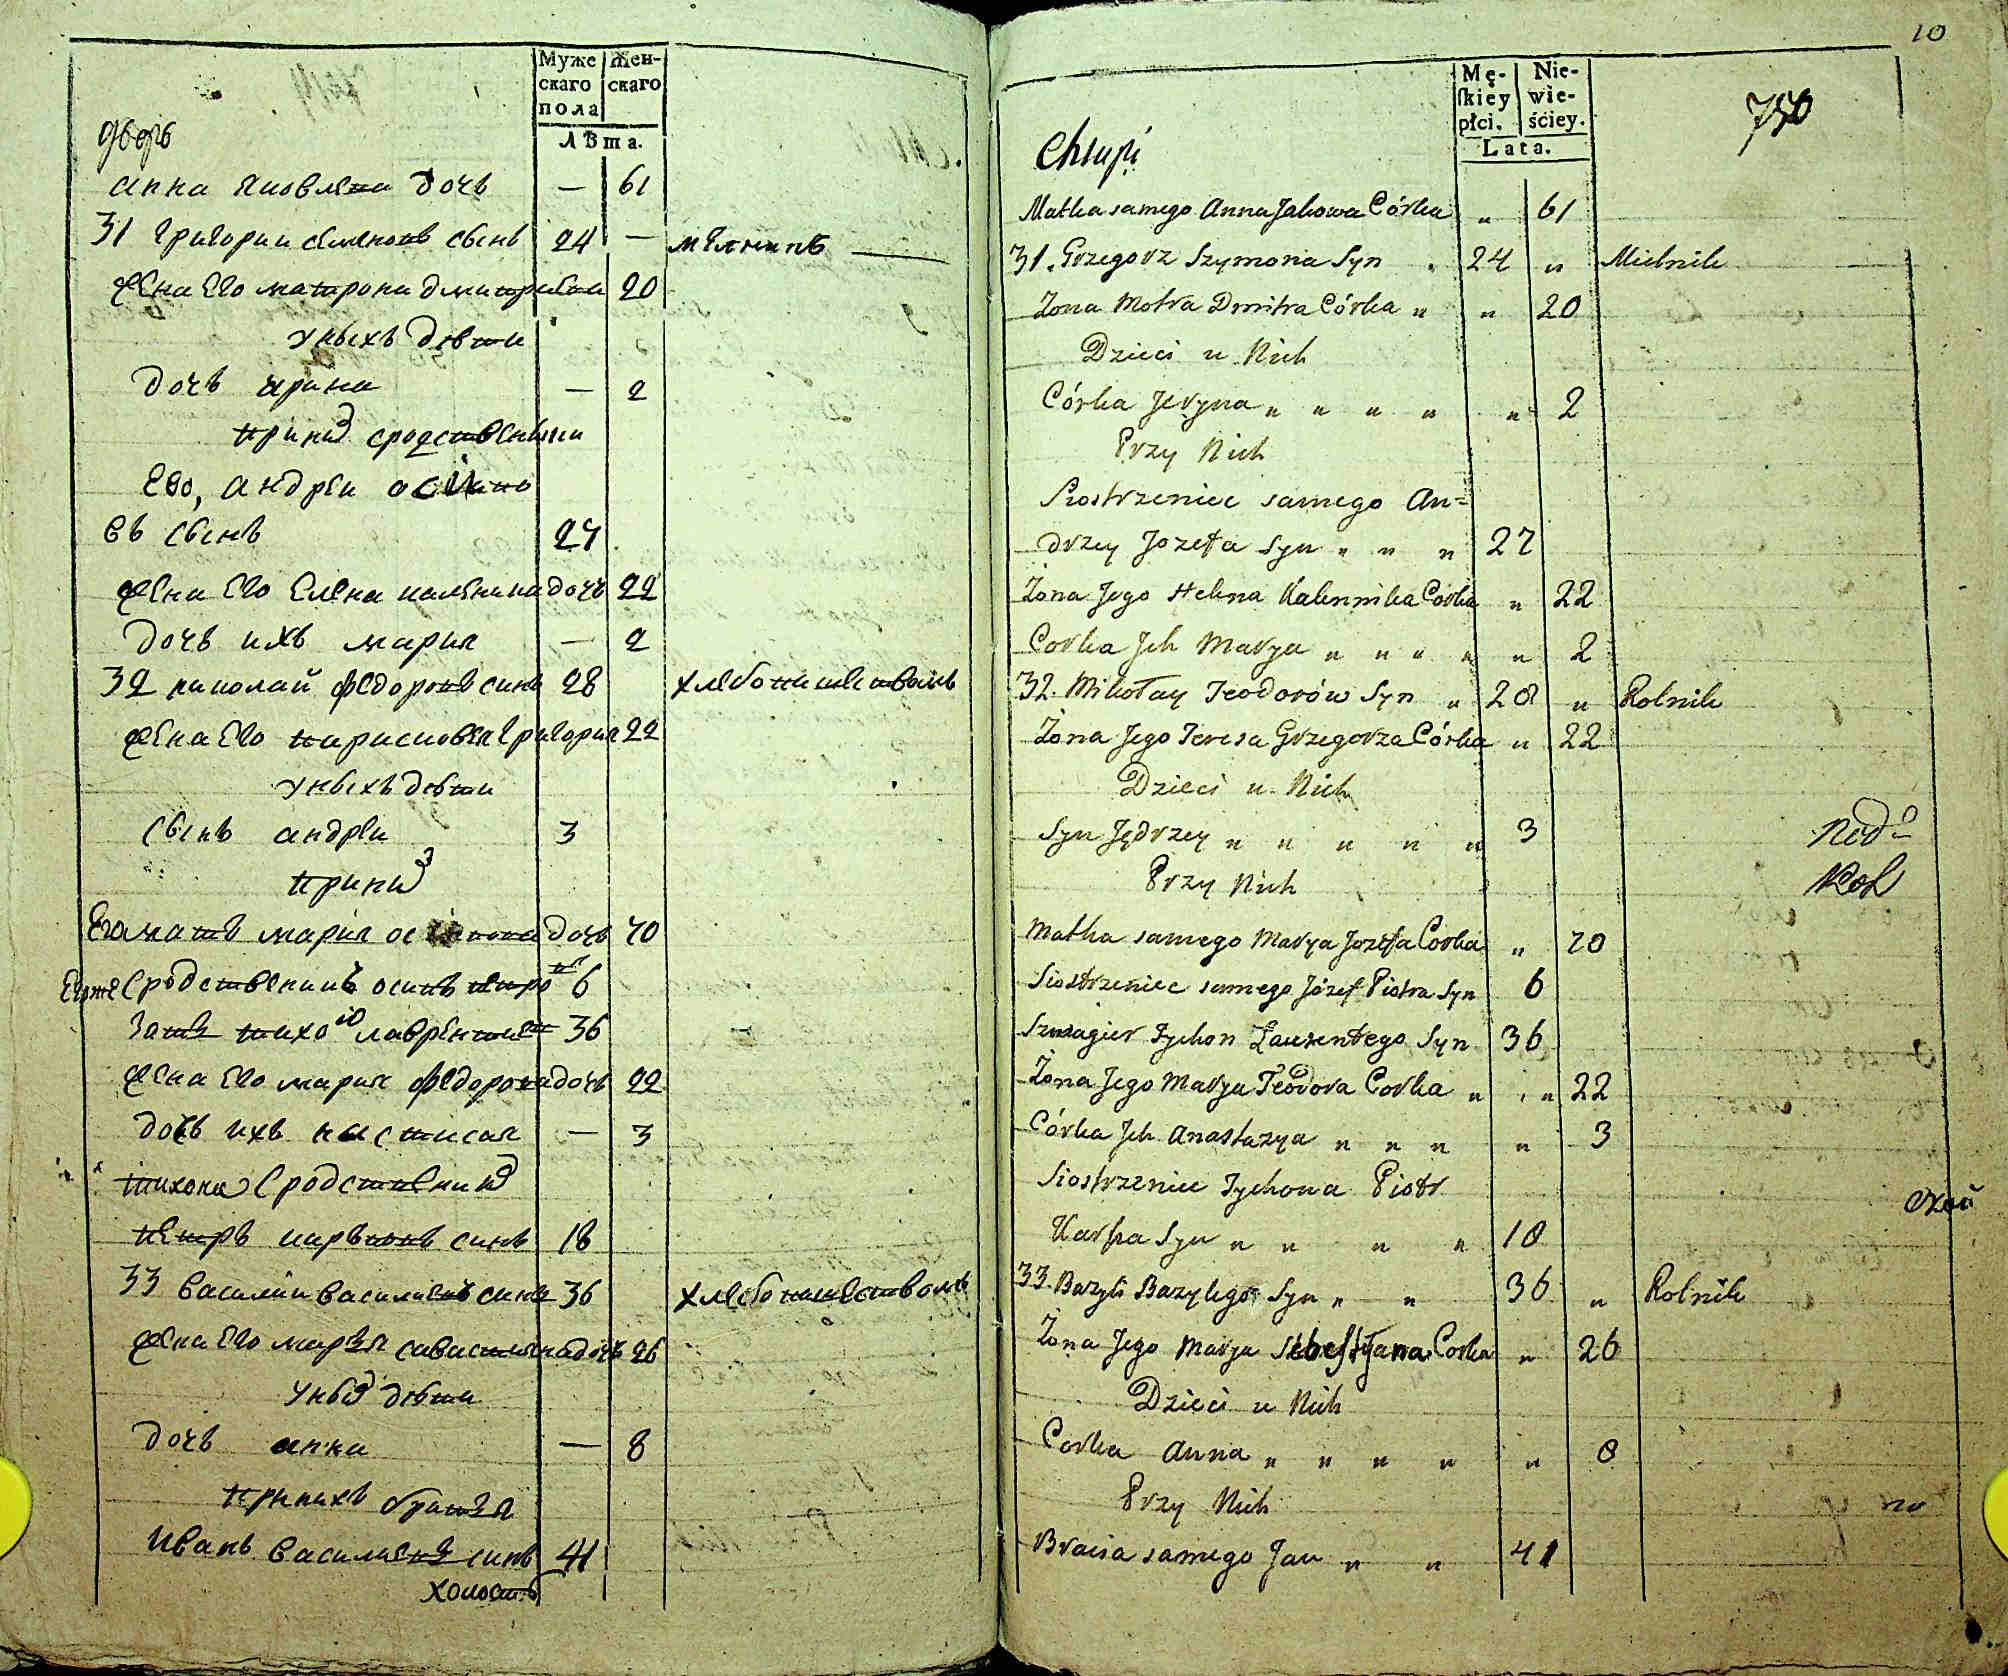 Муже
скаго
пола
Жен-
скаго
Лѣта.
дворъ
анна яковлена дочь — 61
31 григории семеновъ сынъ 24 — мелникъ
жена его матрона дмитрова 20
уныхъ дѣти
дочь ирина — 2
приних сродственики
его, андреи осипо
въ сынъ 27
жена его елена каленика дочь 22
дочь ихъ мария — 2
32 николай федоровъ синъ 28 хлебопашествомъ
жена его парасковея григория 22
уныхъ дѣти
сынъ андреи 3
приних
Его мать мария осипова дочь 70
Егоже сродственикъ осипъ петро 6
зать тихо лаврентие 36
жена его мария федорова дочь 22
дочь ихъ настасия — 3
тихона сродственик
петръ карповъ синъ 18
33 василий василиевъ синъ 36 хлебопашествомъ
жена его марья савастияна дочь 26
уных дѣти
дочь анна — 8
принихъ братья
иванъ василиевъ синъ 41
холостъ
10
Mę-
ſkiey
płci.
Nie-
wie-
ściey.
Lata.
750
Chłupi
Matka samego Anna Jakowa Córka " 61
31. Grzegorz Szymona Syn . 24 " Mielnik
Żona Motra Dmitra Córka " " 20
Dzieci u Nich
Córka Jeryna " " " " " 2
Przy Nich
Siostrzeniec samego An=
drzey Jozefa Syn " " " 27
Żona Jego Helena Kalennika Corka " 22
Corka Jch Marya " " " " " 2
32. Mikołay Teodorów Syn " 28 " Rolnik
Żona Jego Teresa Grzegorza Córka " 22
Dzieci u Nich
Syn Jędrzey " " " " " 3
Przy Nich
Matka samego Marya Jozefa Corka " 70
Siostrzeniec samego Józef Piotra Syn 6
Szwagier Tychon Laurentego Syn 36
Żona Jego Marya Teodora Corka " " 22
Córka Jch Anastazya " " " " 3
Siostrzeniec Tychona Piotr
Karpa Syn " " " " 18
33. Bazyli Bazylego Syn " " 36 " Rolnik
Żona Jego Marya Sebestyana Corka " 26
Dzieci u Nich
Corka Anna " " " " " 8
Przy Nich
Bracia samego Jan " " 41